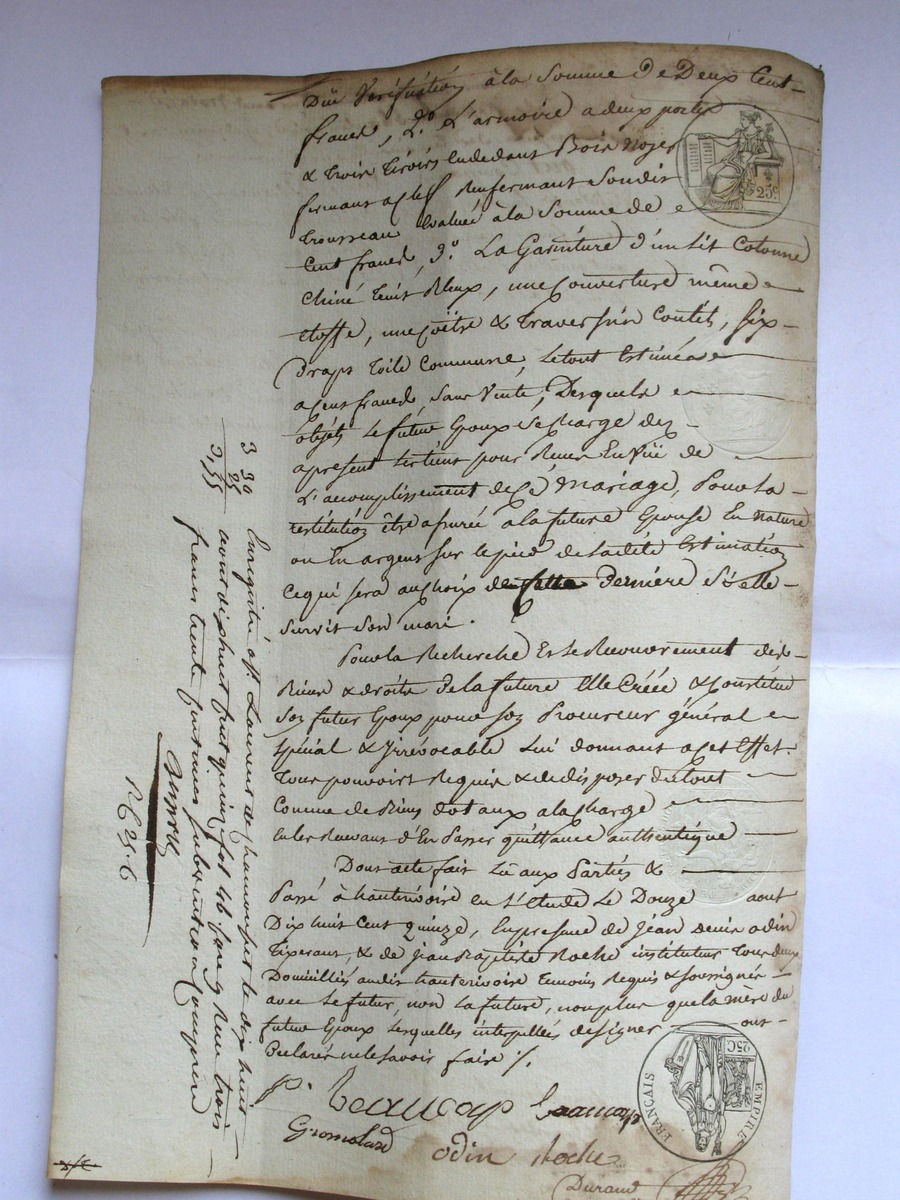 Due Verification à la Somme de Deux Cent
francs, 2.º L'armoire a deux portes
& trois tiroirs endedans Bois noyer
fermant a clef Renfermant Soudit
trousseau Evaluée à la Somme de
Cent francs, 3.º La Garniture d'un Lit Colonne
Chiné Bleux, une Couverture même
étoffe, une coëtre & traversin Coutés, six
draps toile Commune, letout Estimé
a cent francs, Sans Vente, Desquels
objets le futur Epoux se charge des
apresent pour Revenu En Vüe de
L'accomplissement de Ce Mariage, Pour la
restitution être assurée a la future Epouse En nature
ou En argent sur lepied de ladite Estimation
Cequi sera au choix de cette Derniere S'i elle
survit son mari.
Pour la Recherche Et le Recouvrement des
Biens & droits de la future Elle Créée & Constitue
son futur Epoux pour son Procureur général
spécial & irrévocable Lui donnant a cet Effet
tous pouvoirs Requis & de disposer du tout
Comme de Biens dotaux a la Charge
en les Recevant d'En Passer quittance authentique
Dont acte fait Lu aux Parties &
Passé à hauterivoire en L'étude Le Douze aout
Dix huit Cent quinze, En presence de Jean denis odin
tixerant, & de Jean Baptiste Roche instituteur tous deux
Domiciliés audit hauterivoire temoins Requis & soussignés
avec Le futur, non La future, non plus que la mère du
futur Epoux Lesquelles interpellées designer ont
Declarés ne le savoir faire %.
p. Beaucoup
Gromolard
odin Roche
Durand
25.C
EMPIRE FRANÇAIS
25C
Enregistré à St. Laurent de Chamousset le dix huit
aout dix huit cent quinze fol. 46 Reçu trois
francs trente centimes subvention comprise
3 30
25
3,55